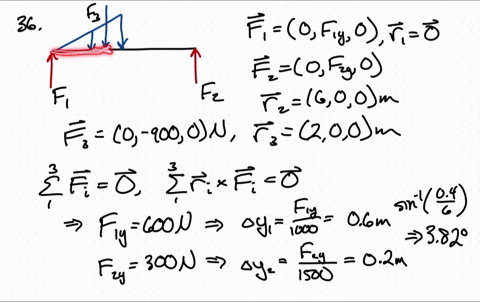 36.
F₃
F₁
F₂
F⃗₁ = (0, F₁y, 0), r⃗₁ = 0⃗
F⃗₂ = (0, F₂y, 0)
r⃗₂ = (6,0,0)m
F⃗₃ = (0, -900, 0)N, r⃗₃ = (2,0,0)m
∑₁³ F⃗ᵢ = 0⃗, ∑₁³ r⃗ᵢ × F⃗ᵢ = 0⃗
⇒ F₁y = 600N ⇒ Δy₁ = F₁y/1000 = 0.6m
F₂y = 300N ⇒ Δy₂ = F₂y/1500 = 0.2m
sin⁻¹(0.4/6)
⇒ 3.82°